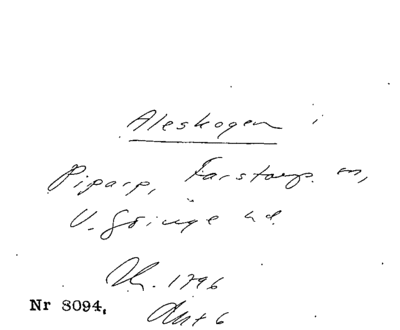 Aleskogen i
Piparp, Farstorp sn,
V. Göinge hd.
Th. 1796
Akt 6
Nr 8094.